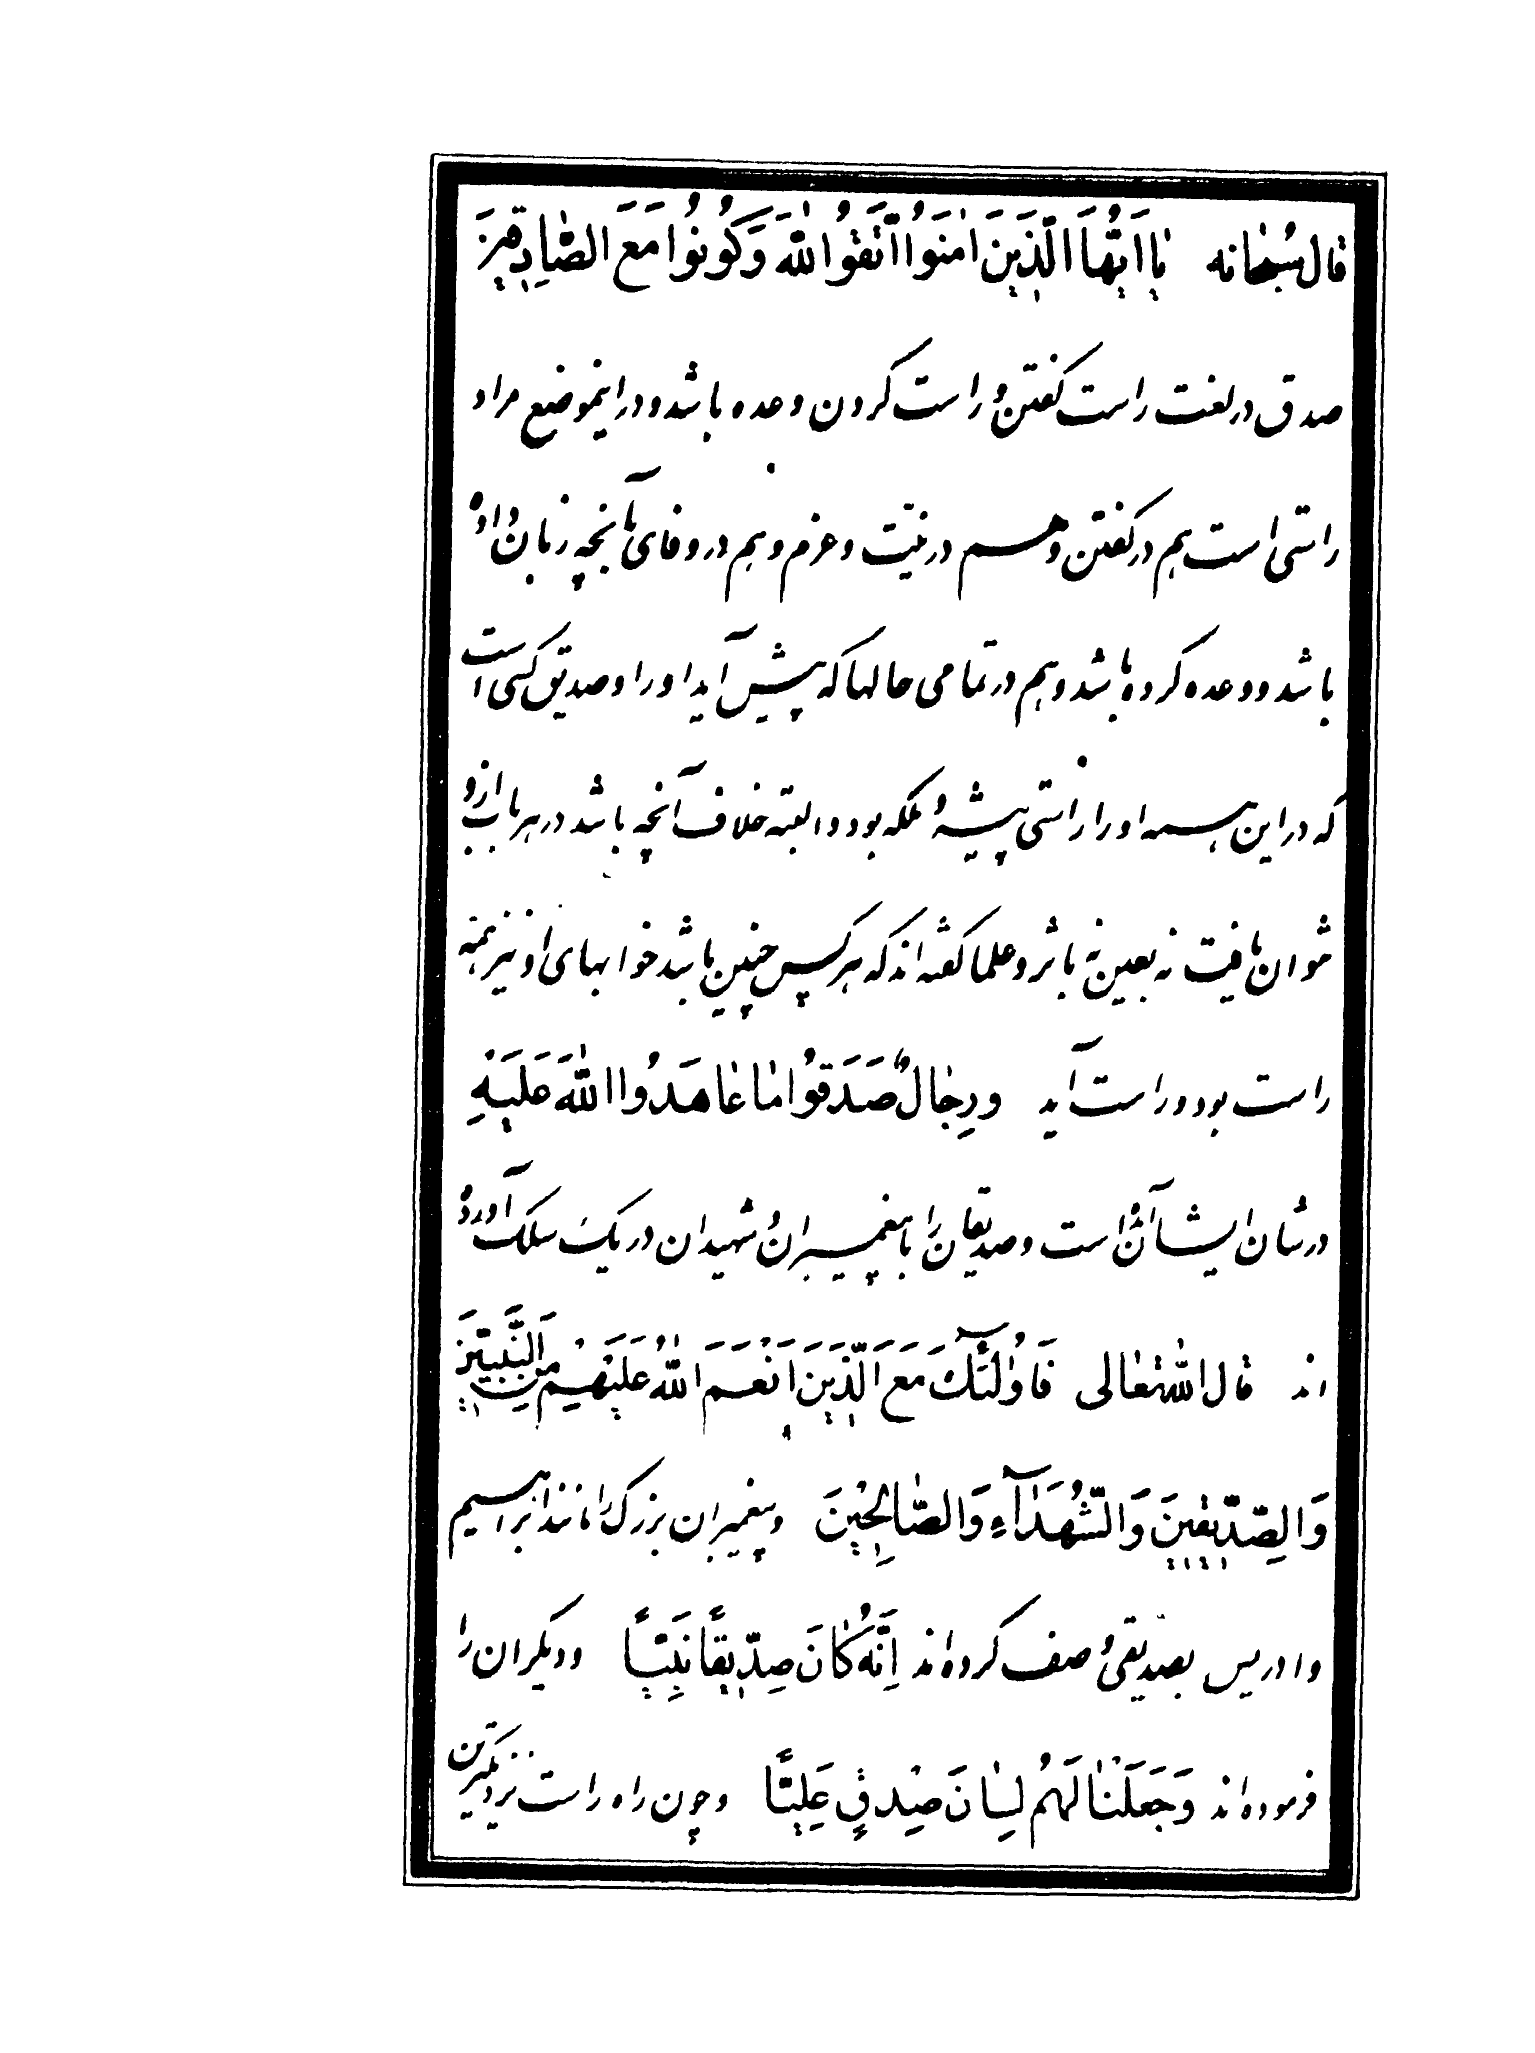 قال سُبحانه یا اَیُّهَا الَّذینَ امَنُوا اتَّقُوا اللّٰهَ وَکُونُوا مَعَ الصّٰادِقینَ
صدق در لغت راست کفتن و راست کردن وعده باشد و در اینموضع مراد
راستی است هم در کفتن و هم در نیّت و عزم و هم در وفای بآنچه زبان داده
باشد و وعده کرده باشد و هم در تمامی حالها که پیش آید او را و صدیق کسی است
که در این همه او را راستی پیشه و ملکه بود و البته خلاف آنچه باشد در هر باب ازو
نتوان یافت نه بعین نه باثر و علما کفته اند که هر کس چنین باشد خوابهای او نیز همه
راست بود و راست آید و رِجٰالٌ صَدَقُوا مٰا عٰاهَدُوا اللّٰهَ عَلَیْهِ
در شان ایشان است و صدیقان را با پیغمبران و شهیدان در یک سلک آورده
اند قال اللّٰه تعٰالی فَاُولٰئِکَ مَعَ الَّذینَ اَنْعَمَ اللّٰهُ عَلَیْهِمْ مِنَ النَّبِیّینَ
وَالصِّدّیقینَ وَالشُّهَدٰآءِ وَالصّٰالِحینَ و پیغمبران بزرک را مانند ابراهیم
و ادریس بصدیقی وصف کرده‌اند اِنَّهُ کٰانَ صِدّیقًا نَبِیًّا و دیکران را
فرموده‌اند وَجَعَلْنٰا لَهُمْ لِسٰانَ صِدْقٍ عَلِیًّا و چون راه راست نزدیکترین